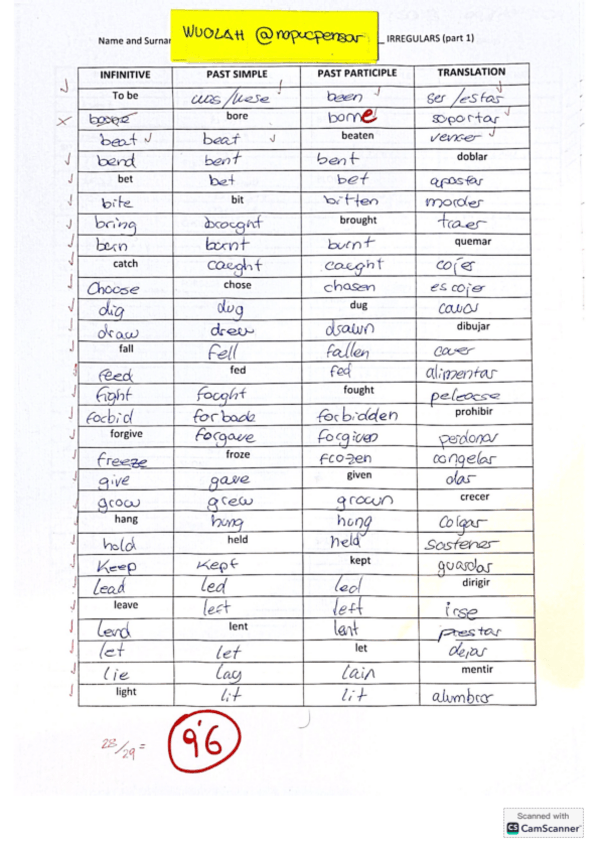 WUOLAH @nopucpensar
Name and Surna _ IRREGULARS (part 1)
INFINITIVE PAST SIMPLE PAST PARTICIPLE TRANSLATION
To be was/wese been ser/estar
bore borne soportar
beat beat beaten vencer
bend bent bent doblar
bet bet bet apostar
bite bit bitten morder
bring brought brought traer
burn burnt burnt quemar
catch caught caught cojer
Choose chose chosen escojer
dig dug dug cavar
draw drew drawn dibujar
fall fell fallen caer
feed fed fed alimentar
fight fought fought pelearse
forbid forbade forbidden prohibir
forgive forgave forgiven perdonar
freeze froze frozen congelar
give gave given dar
grow grew grown crecer
hang hung hung colgar
hold held held sostener
Keep Kept kept guardar
Lead Led led dirigir
leave left left irse
Lend lent lent prestar
Let Let let dejar
Lie Lay Lain mentir
light Lit Lit alumbrar
28/29=
9'6
Scanned with
CS CamScanner